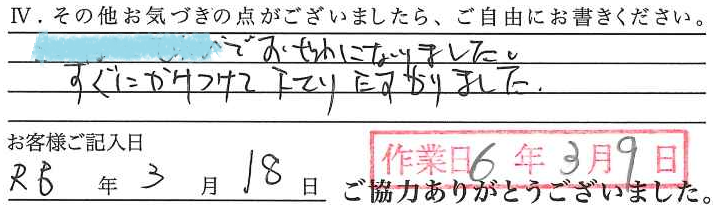 Ⅳ.その他お気づきの点がございましたら、ご自由にお書きください。
でおせわになりました。
すぐにかけつけて下さりたすかりました.
お客様ご記入日
作業日6年3月9日
R6年3月18日
ご協力ありがとうございました。